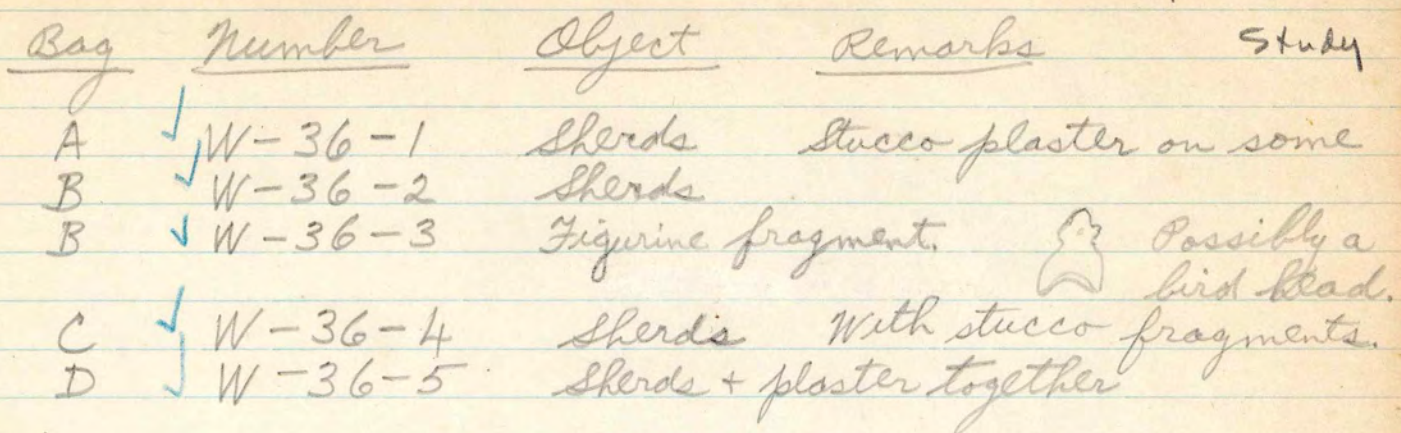 Bag Number Object Remarks Study
A ✓ W-36-1 Sherds Stucco plaster on some
B ✓ W-36-2 Sherds
B ✓ W-36-3 Figurine fragment. Possibly a
bird head.
C ✓ W-36-4 Sherds With stucco fragments.
D ✓ W-36-5 Sherds + plaster together